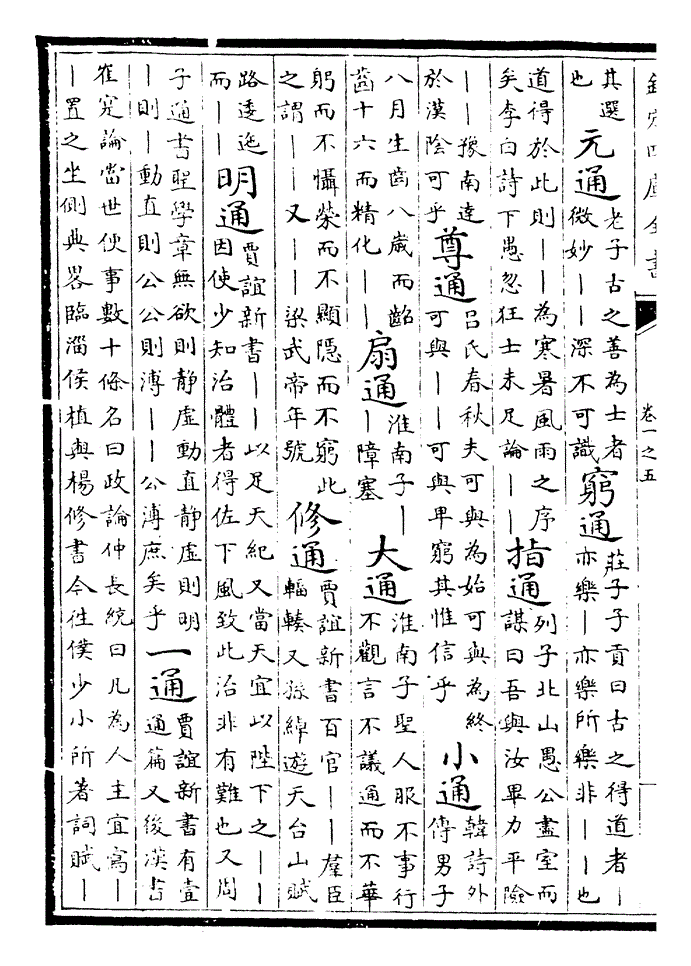 欽定四庫全書
卷一之五
其選也元通老子古之善為士者微妙——深不可識窮通莊子子貢曰古之得道者—亦樂—亦樂所樂非——也
道得於此則——為寒暑風雨之序矣李白詩下愚忽狂士未足論——指通列子北山愚公盡室而謀曰吾與汝畢力平險
——豫南達於漢陰可乎尊通吕氏春秋夫可與為始可與為終可與——可與卑窮其惟信乎小通韓詩外傳男子
八月生齒八歲而齠齒十六而精化——扇通淮南子——障塞大通淮南子聖人服不事行不觀言不議通而不華
躬而不懾榮而不顯隱而不窮此之謂——又——梁武帝年號修通賈誼新書百官——羣臣輻輳又孫綽遊天台山賦
路逶迤而——明通賈誼新書——以足天紀又當天宜以陛下之——因使少知治體者得佐下風致此治非有難也又周
子通書聖學章無欲則靜虚動直靜虚則明—則—動直則公公則溥——公溥庶矣乎一通賈誼新書有壹通篇又後漢書
崔寔論當世便事數十條名曰政論仲長統曰凡為人主宜寫——置之坐側典畧臨淄侯植與楊修書今往僕少小所著詞賦—